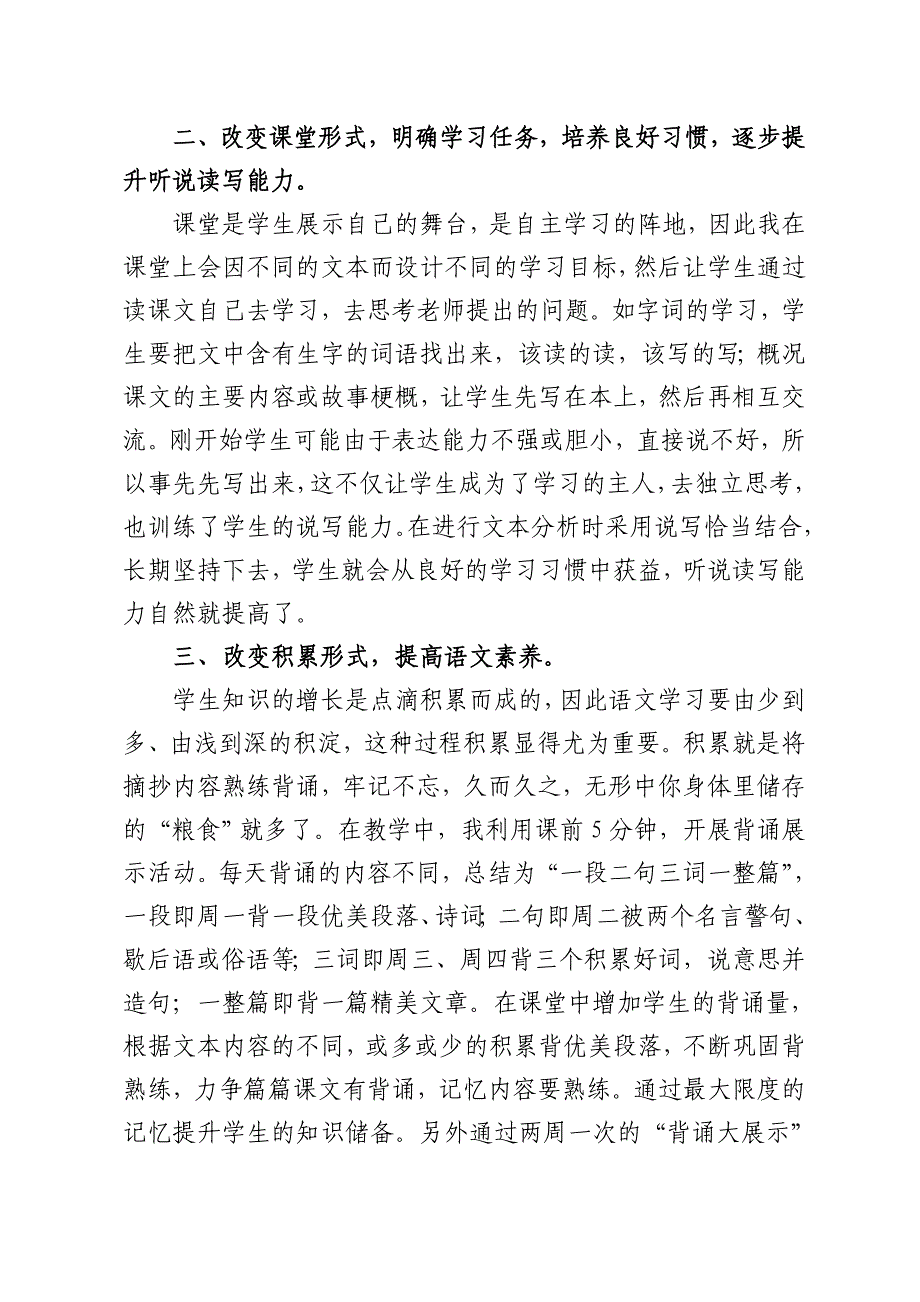 二、改变课堂形式，明确学习任务，培养良好习惯，逐步提
升听说读写能力。
课堂是学生展示自己的舞台，是自主学习的阵地，因此我在
课堂上会因不同的文本而设计不同的学习目标，然后让学生通过
读课文自己去学习，去思考老师提出的问题。如字词的学习，学
生要把文中含有生字的词语找出来，该读的读，该写的写；概况
课文的主要内容或故事梗概，让学生先写在本上，然后再相互交
流。刚开始学生可能由于表达能力不强或胆小，直接说不好，所
以事先先写出来，这不仅让学生成为了学习的主人，去独立思考，
也训练了学生的说写能力。在进行文本分析时采用说写恰当结合，
长期坚持下去，学生就会从良好的学习习惯中获益，听说读写能
力自然就提高了。
三、改变积累形式，提高语文素养。
学生知识的增长是点滴积累而成的，因此语文学习要由少到
多、由浅到深的积淀，这种过程积累显得尤为重要。积累就是将
摘抄内容熟练背诵，牢记不忘，久而久之，无形中你身体里储存
的“粮食”就多了。在教学中，我利用课前 5 分钟，开展背诵展
示活动。每天背诵的内容不同，总结为“一段二句三词一整篇”，
一段即周一背一段优美段落、诗词；二句即周二被两个名言警句、
歇后语或俗语等；三词即周三、周四背三个积累好词，说意思并
造句；一整篇即背一篇精美文章。在课堂中增加学生的背诵量，
根据文本内容的不同，或多或少的积累背优美段落，不断巩固背
熟练，力争篇篇课文有背诵，记忆内容要熟练。通过最大限度的
记忆提升学生的知识储备。另外通过两周一次的“背诵大展示”